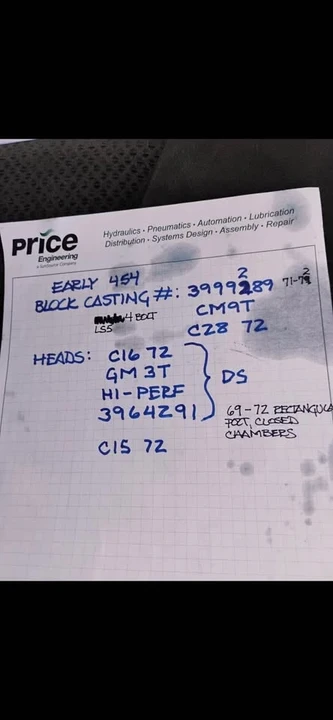 Hydraulics • Pneumatics • Automation • Lubrication
Distribution • Systems Design • Assembly • Repair
price
Engineering
A SunSource Company
EARLY 454
BLOCK CASTING #: 3999289 71-72
4 BOLT
LS5
CM9T
C28 72
HEADS: C16 72
GM 3T
HI-PERF
3964291
DS
69-72 RECTANGULA
PORT, CLOSED
CHAMBERS
C15 72